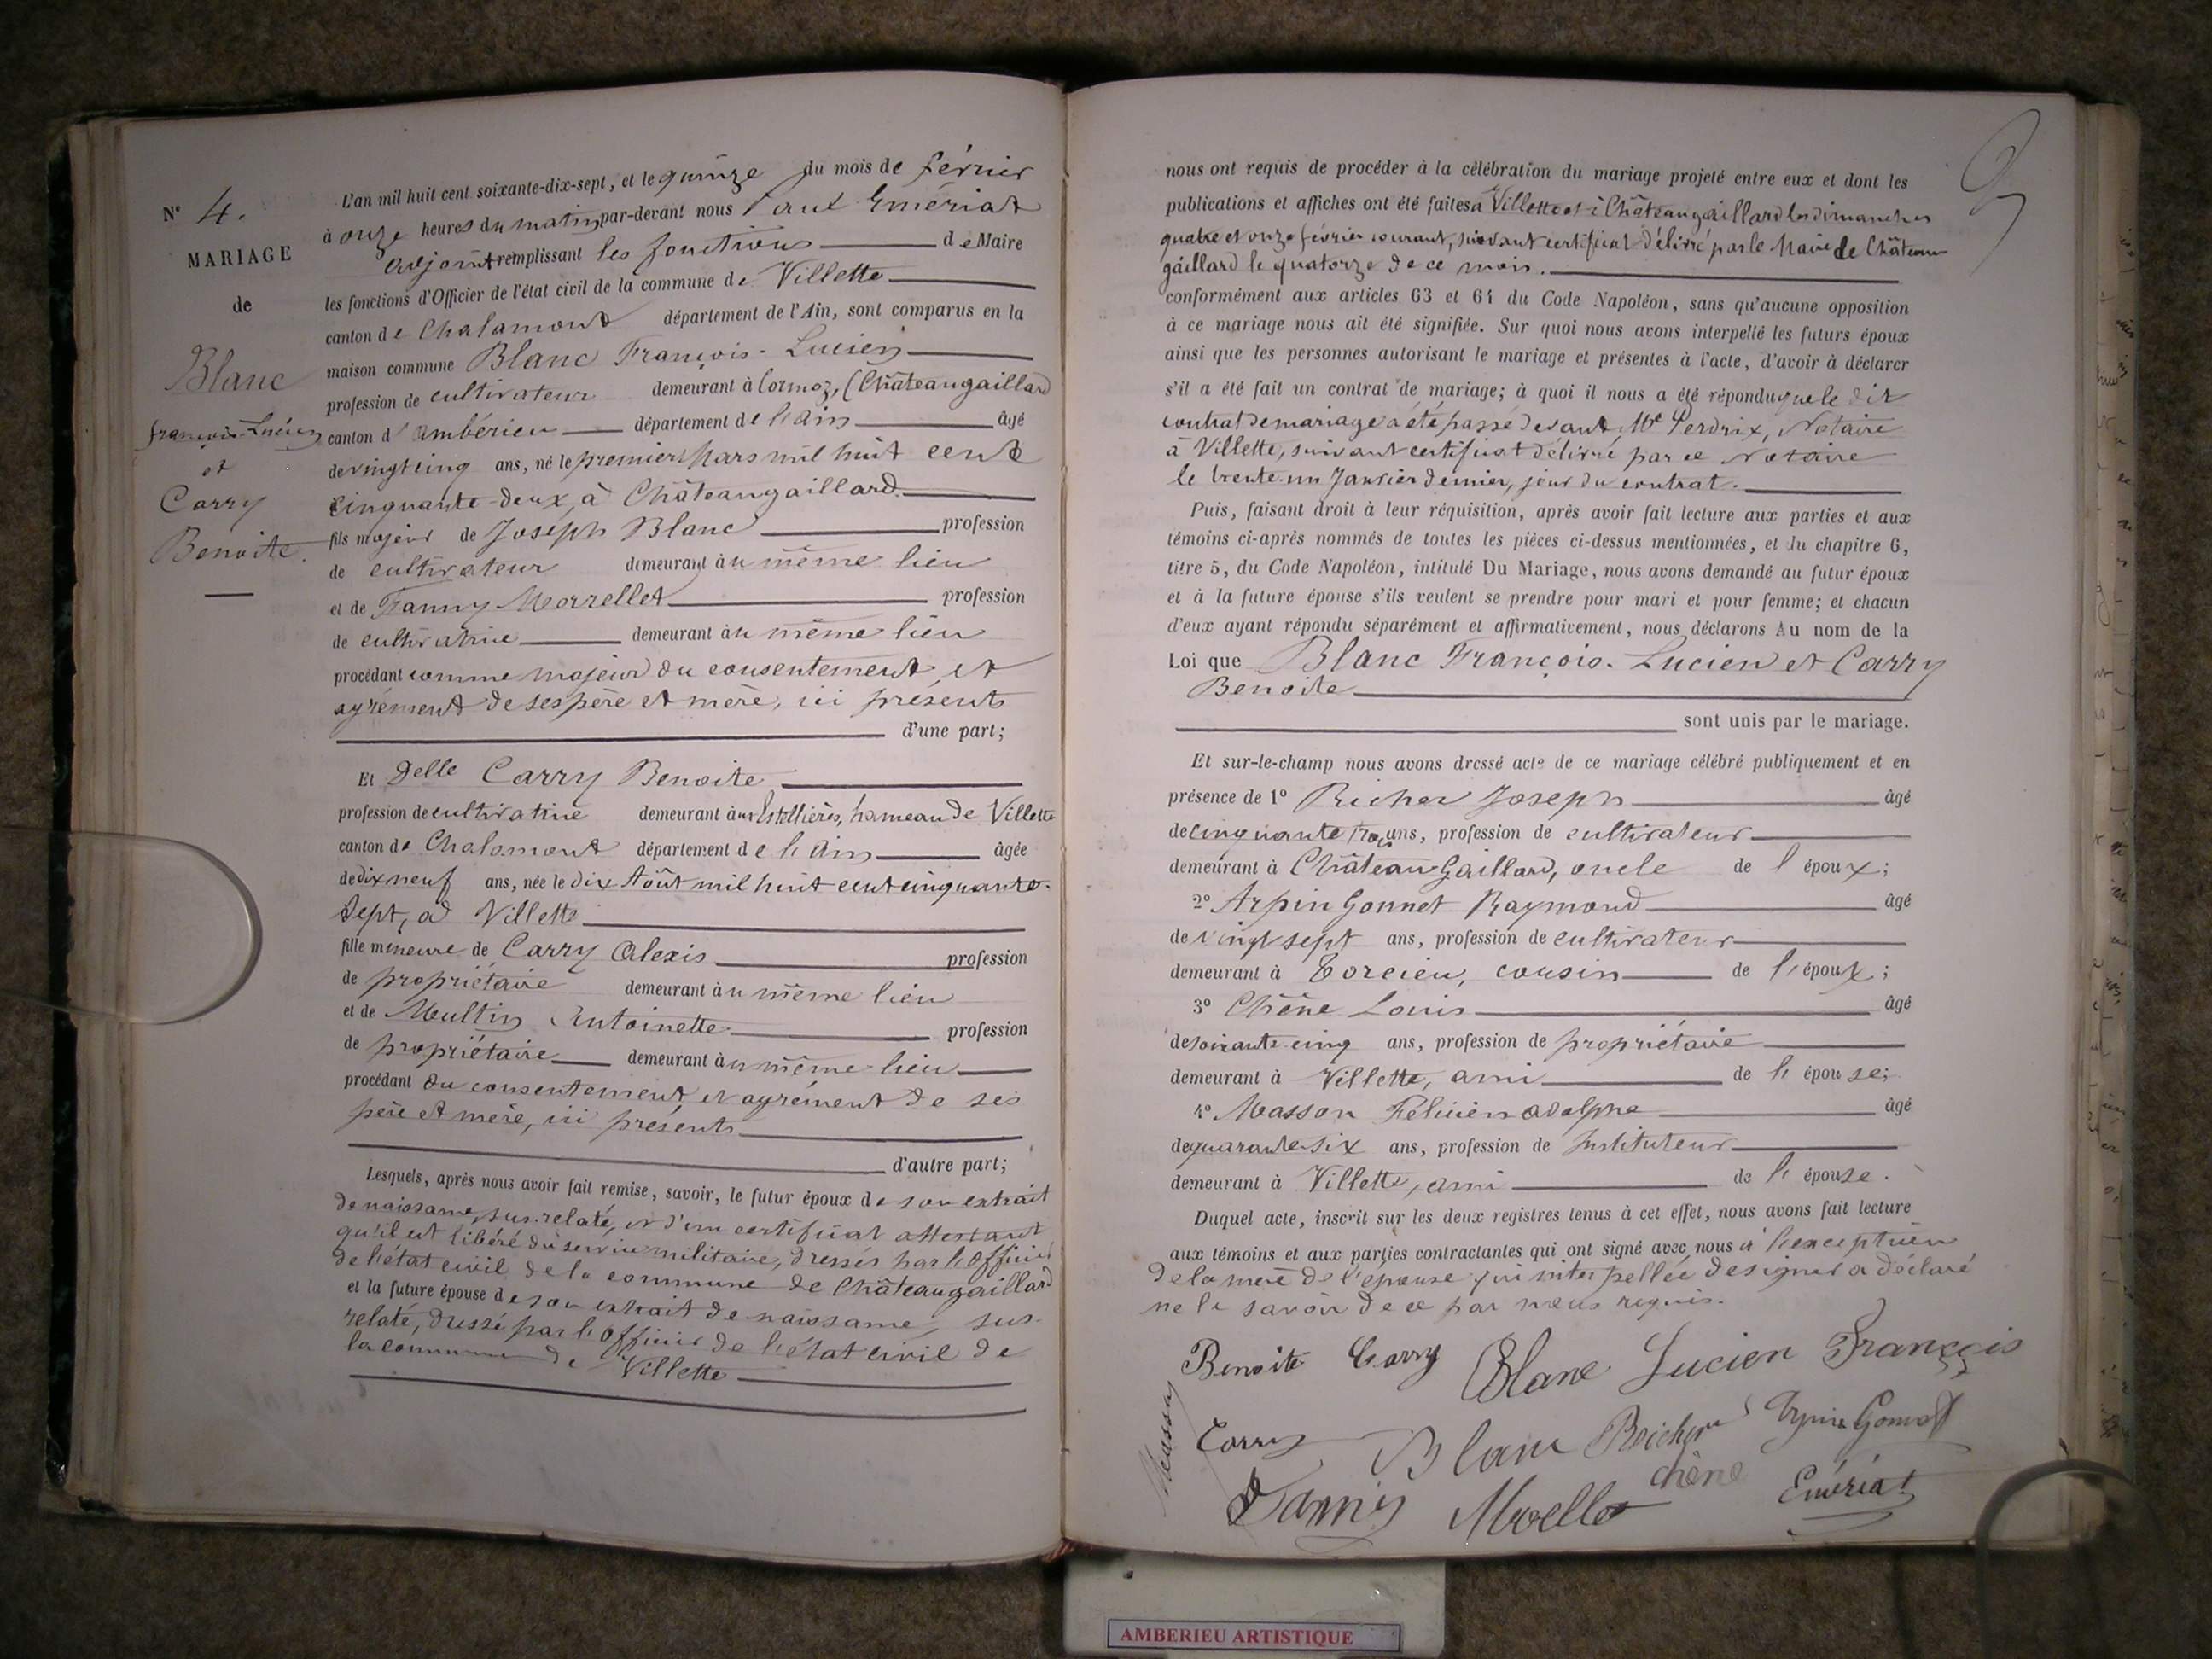 N° 4.
MARIAGE
de
Blanc
françois-Lucien
et
Carry
Benoite.
L'an mil huit cent soixante-dix-sept, et le quinze du mois de février
à onze heures du matin par-devant nous Paul Emériat
adjoint remplissant les fonctions de Maire
les fonctions d'Officier de l'état civil de la commune de Villette
canton de Chalamont département de l'Ain, sont comparus en la
maison commune Blanc François-Lucien
profession de cultivateur demeurant à Cormoz, (Châteaugaillard
canton d'ambérieu département de l'ain âgé
de vingt cinq ans, né le premier Mars mil huit cent
cinquante-deux, à Châteaugaillard.
fils majeur de Joseph Blanc profession
de cultivateur demeurant au même lieu
et de Fanny Morrellet profession
de cultivatrice demeurant au même lieu
procédant comme majeur du consentement et
agrément de ses père et mère, ici présents
d'une part;
Et Delle Carry Benoite
profession de cultivatrice demeurant aux Estollières, hameau de Villette
canton de Chalamont département de l'ain âgée
de dix neuf ans, née le dix Août mil huit cent cinquante-
sept, à Villette
fille mineure de Carry Alexis profession
de propriétaire demeurant au même lieu
et de Multin Antoinette profession
de propriétaire demeurant au même lieu
procédant du consentement et agrément de ses
père et mère, ici présents
d'autre part;
Lesquels, après nous avoir fait remise, savoir, le futur époux de son extrait
de naissance, sus-relaté, et d'un certificat attestant
qu'il est libéré du service militaire, dressés par l'officier
de l'état civil de la commune de Châteaugaillard
et la future épouse de son extrait de naissance, sus-
relaté, dressé par l'officier de l'état civil de
la commune de Villette
nous ont requis de procéder à la célébration du mariage projeté entre eux et dont les
publications et affiches ont été faites à Villette et à Châteaugaillard les dimanches
quatre et onze février courant, suivant certificat délivré par le Maire de Château-
gaillard le quatorze de ce mois.
conformément aux articles 63 et 64 du Code Napoléon, sans qu'aucune opposition
à ce mariage nous ait été signifiée. Sur quoi nous avons interpellé les futurs époux
ainsi que les personnes autorisant le mariage et présentes à l'acte, d'avoir à déclarer
s'il a été fait un contrat de mariage; à quoi il nous a été répondu que le dit
contrat de mariage a été passé devant Me Perdrix, Notaire
à Villette, suivant certificat délivré par ce Notaire
le trente-un Janvier dernier, jour du contrat.
Puis, faisant droit à leur réquisition, après avoir fait lecture aux parties et aux
témoins ci-après nommés de toutes les pièces ci-dessus mentionnées, et du chapitre 6,
titre 5, du Code Napoléon, intitulé Du Mariage, nous avons demandé au futur époux
et à la future épouse s'ils veulent se prendre pour mari et pour femme; et chacun
d'eux ayant répondu séparément et affirmativement, nous déclarons Au nom de la
Loi que Blanc François-Lucien et Carry
Benoite
sont unis par le mariage.
Et sur-le-champ nous avons dressé acte de ce mariage célébré publiquement et en
présence de 1° Richer Joseph âgé
de cinquante trois ans, profession de cultivateur
demeurant à Château Gaillard, oncle de l'époux;
2° Arpin Gonnet Raymond âgé
de vingt sept ans, profession de cultivateur
demeurant à Torcieu, cousin de l'époux;
3° Chêne Louis âgé
de soixante-cinq ans, profession de propriétaire
demeurant à Villette, ami de l'épouse;
4° Masson Félicien adolphe âgé
de quarante-six ans, profession de Instituteur
demeurant à Villette, ami de l'épouse.
Duquel acte, inscrit sur les deux registres tenus à cet effet, nous avons fait lecture
aux témoins et aux parties contractantes qui ont signé avec nous à l'exception
de la mère de l'épouse qui interpellée de signer a déclaré
ne le savoir de ce par nous requis.
Benoite Carry Blanc Lucien François
Masson Carry Blanc Richer Arpin Gonnet
chêne Emériat
AMBERIEU ARTISTIQUE